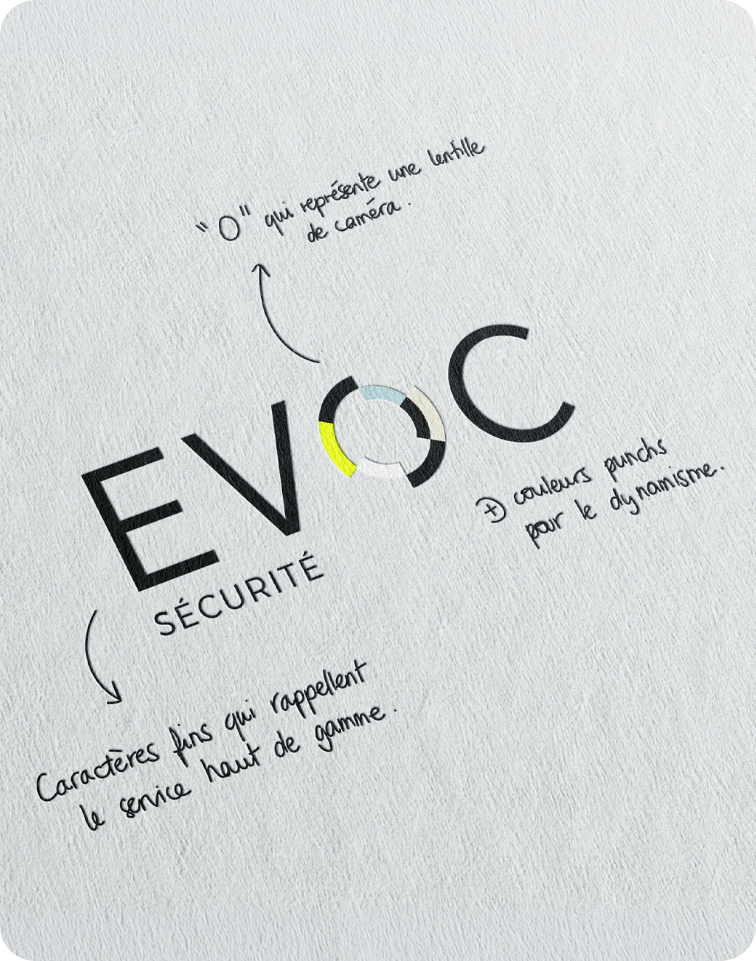 "O" qui représente une lentille
de caméra.
EVOC
SÉCURITÉ
+ couleurs punchs
pour le dynamisme.
Caractères fins qui rappellent
le service haut de gamme.